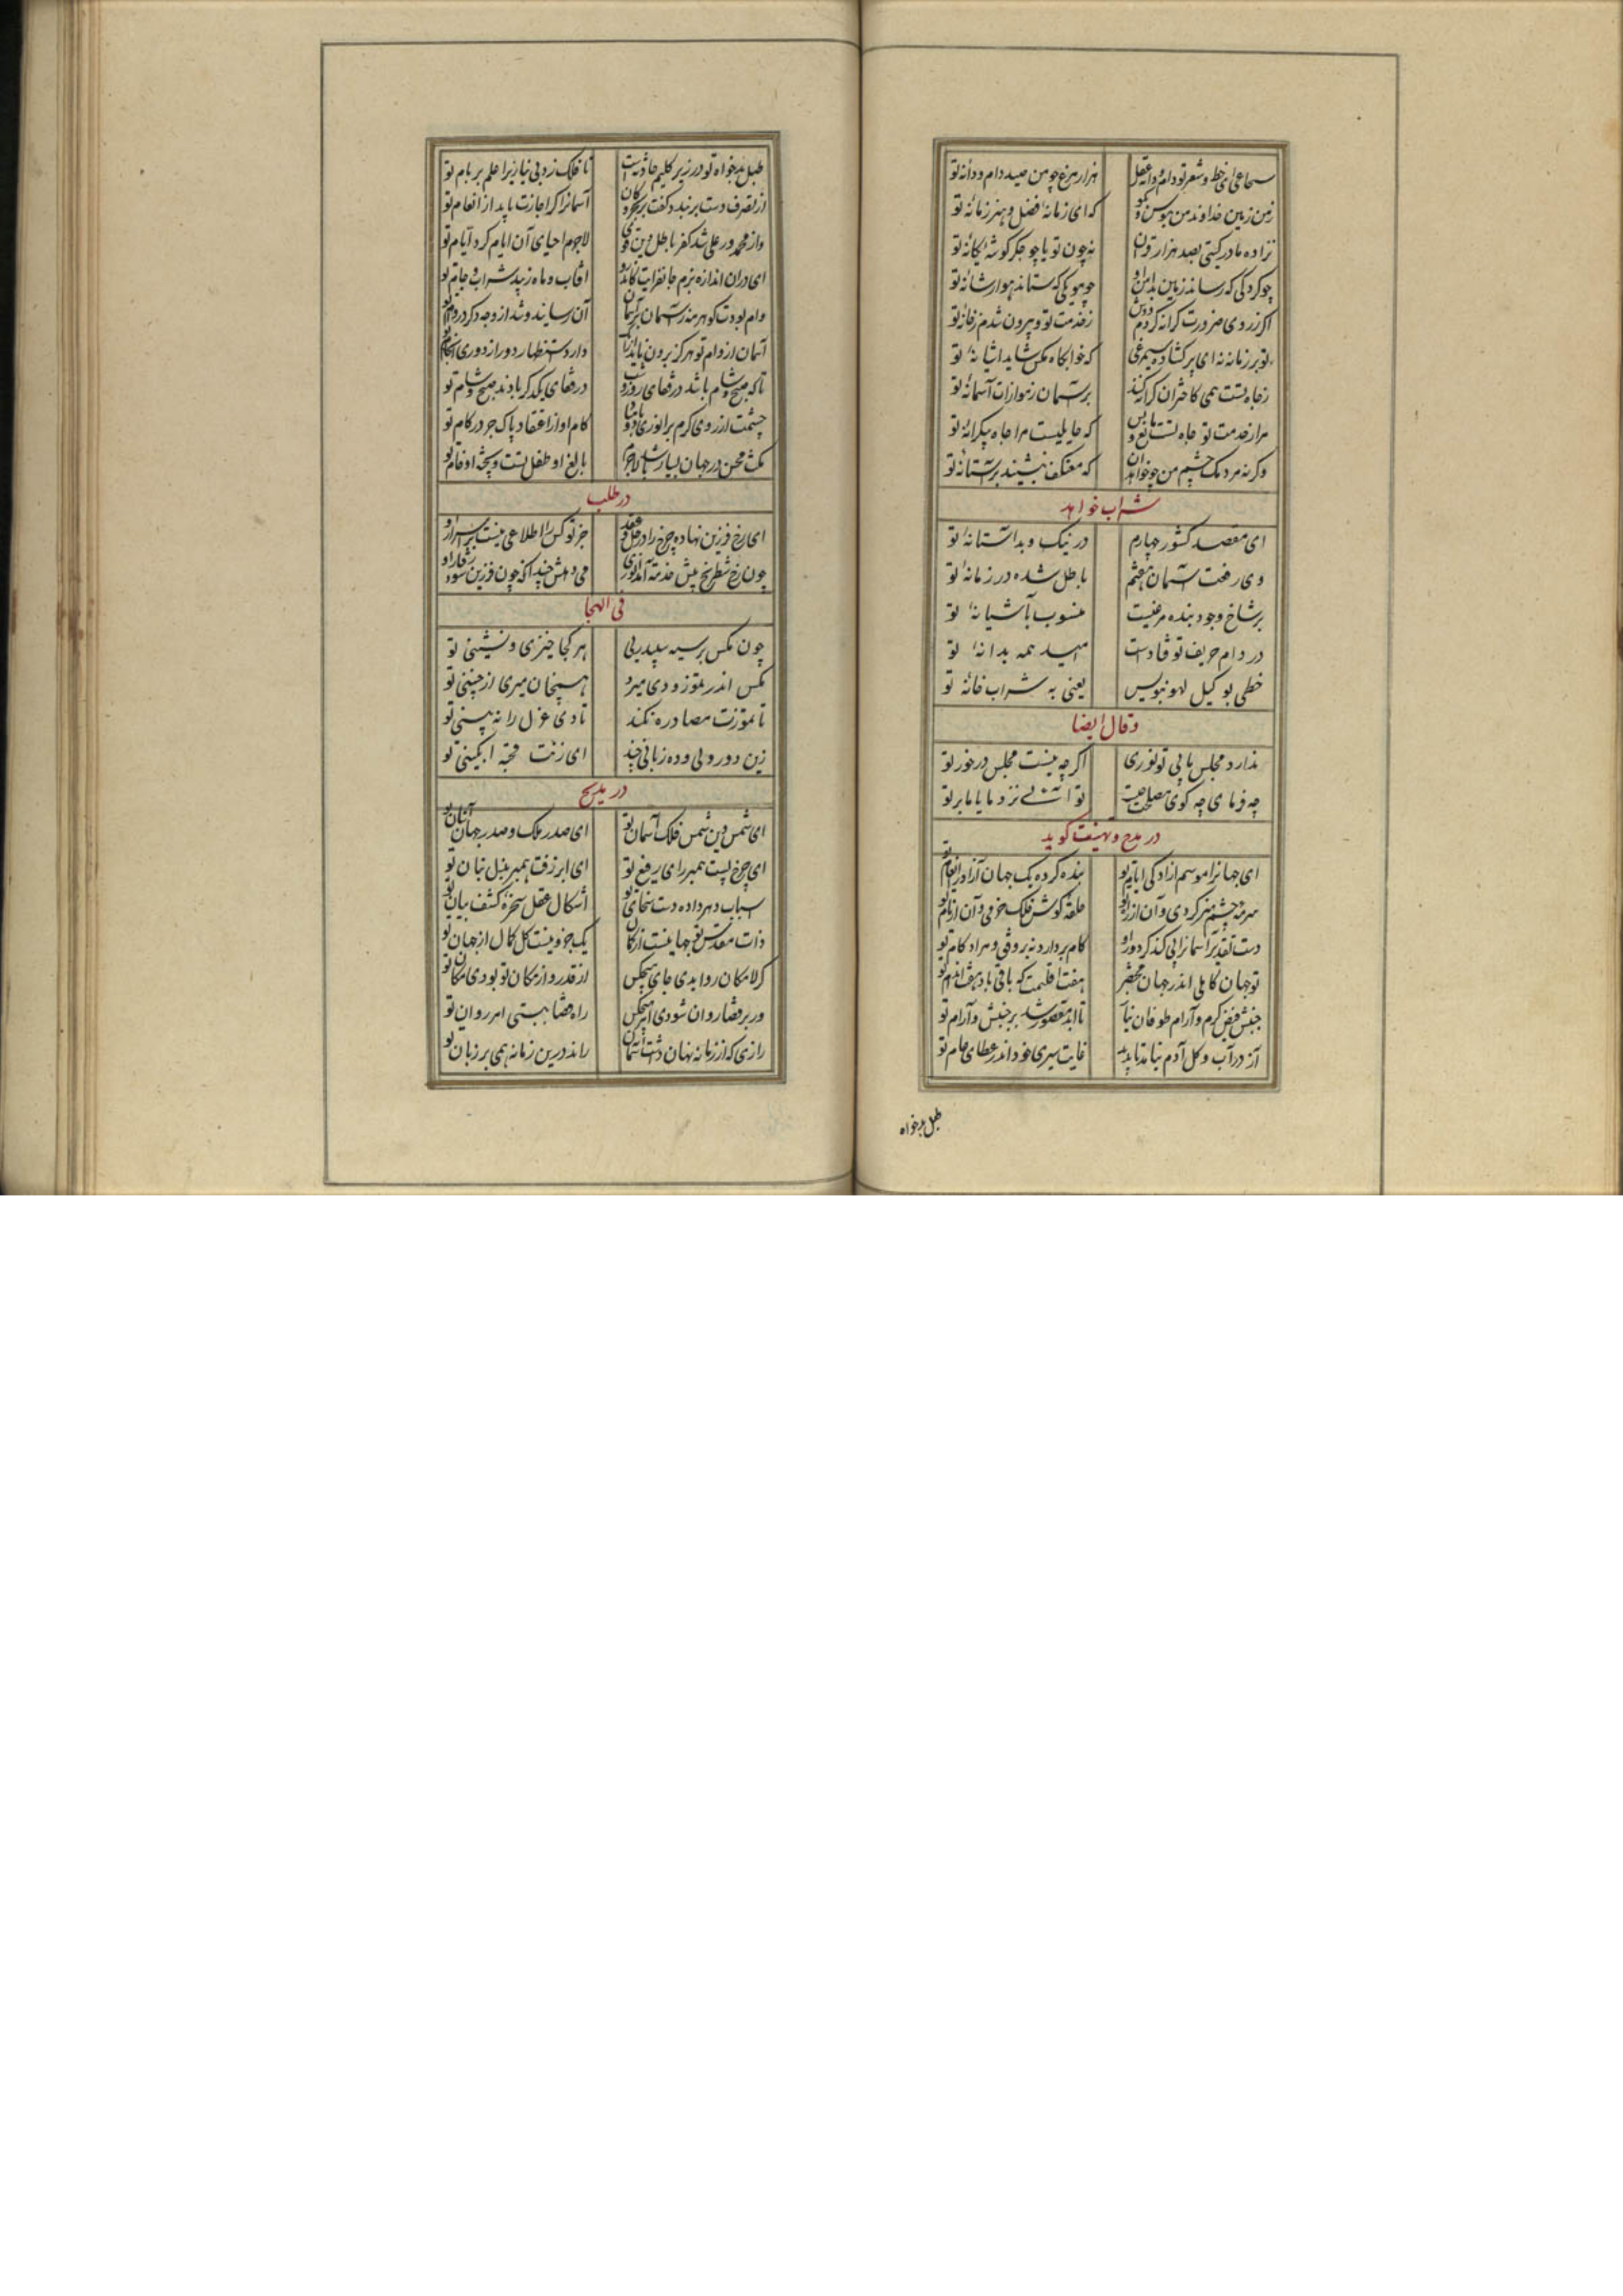 سماعی ای خط و شعر تو دام و دانه عقل هزار مرغ چو من صید دام و دانه تو
زمن زمین خداوند من ببوس و بگو که ای زمانه فضل و هنر زمانه تو
نزاده مادر گیتی بصد هزار قران نه چون تو یا چو جگر گوشه یگانه تو
چو کرد کی که رساند زمین بدامن او
اگر ز روی ضرورت کرانه کردم دوش ز خدمت تو و بیرون شدم ز خانه تو
تو بر زمانه نه ای پر گشاده سیمرغی که خوابگاه مگس شاید آشیانه تو
ز جاه تست همی کاختران کرانه کنند بر آسمان ز موازات آسمانه تو
مرا ز خدمت تو جاه تست مانع و بس که حایلیست مرا جاه بیکرانه تو
و گرنه مردمک چشم من چو خواهد آن که معتکف بنشیند بر آستانه تو
شراب خواهد
ای مقصد کشور چهارم در نیک و بد آستانه تو
وی رفعت آسمان هفتم باطل شده در زمانه تو
بر شاخ وجود بنده مرغیست منسوب بآشیانه تو
در دام حریف تو فتادست امید همه بدانه تو
خطی بوکیل لهو بنویس یعنی به شراب خانه تو
وقال ایضا
ندارد مجلس ما بی تو نوری اگر چه نیست مجلس درخور تو
چه فرمای چه گوی مصلحت چیست تو آئی نزد ما یا ما بر تو
در مدح و تهنیت گوید
ای جهانرا موسم آزادگی ایام تو بنده کرده یک جهان آزاد را انعام تو
حلقه گوش فلک
دست تقدیر آسمانرا پی کند گر دور او کام بردارد نه بر وفق مراد کام تو
تو جهان کاملی اندر جهان مختصر هفت اقلیمت که باقی باد هفت اندام تو
تا ابد مقصور شد بر جنبش و آرام تو
آز در آب و گل آدم نیامد تا پدید غایت سیری خود اندر عطای عام تو
طبل بدخواه
طبل بدخواه تو در زیر گلیم حادثه است تا فلک زد بی نیازیرا علم بر بام تو
از تصرف دست بر بندد کفت بر بحر و کان آسمانرا گر اجازت یابد از انعام تو
لاجرم احیای آن ایام کرد ایام تو
ای در آن اندازه بزم جانفزایت کاندرو آفتاب و ماه زیبد شراب و جام تو
وام بودت گوهر
آسمان از وام تو هرگز برون نیاید
تا که صبح و شام باشد در قفای روز و شب در قفای یکدگر بادند صبح و شام تو
چشمت از روی کرم بر انوری بادا کام او از اعتقاد پاک جز در کام تو
بالغ او طفل تست و پخته او خام تو
در طلب
ای رخ فرزین نهاده چرخ را در حل و عقد جز تو کس را اطلاعی نیست بر اسرار او
چون رخ شطرنج پیش خدمت آمد انوری می دهش چندانکه چون فرزین شود رفتار او
فی الهجا
چون مگس بر سیه سپید بری هر کجا خیزی و نشینی تو
مگس اندر تموز و دی میرد همچنان میری از چنینی تو
تا تموزت مصادره نکند تا دی عزل را نه بینی تو
زین دورویی و ده زبانی چند ای زنت قحبه آبگینی تو
در مدیح
ای شمس دین شمس فلک آسمان تو ای صدر ملک و صدر جهان آستان تو
ای چرخ پست همبر رای رفیع تو ای ابر زفت همبر بذل بنان تو
اسباب دهر داده دست سخای تو اشکال عقل سخره کشف بیان تو
ذات مقدس تو جهانیست از کمال یک جزو نیست کل کمال از جهان تو
گر لامکان روا بدی جای هیچکس از قدر و از مکان تو بودی مکان تو
ور بر قضا روان شودی امر هیچکس راه قضا ببستی امر روان تو
رازی که از زمانه نهان داشت آسمان راند درین زمانه همی بر زبان تو